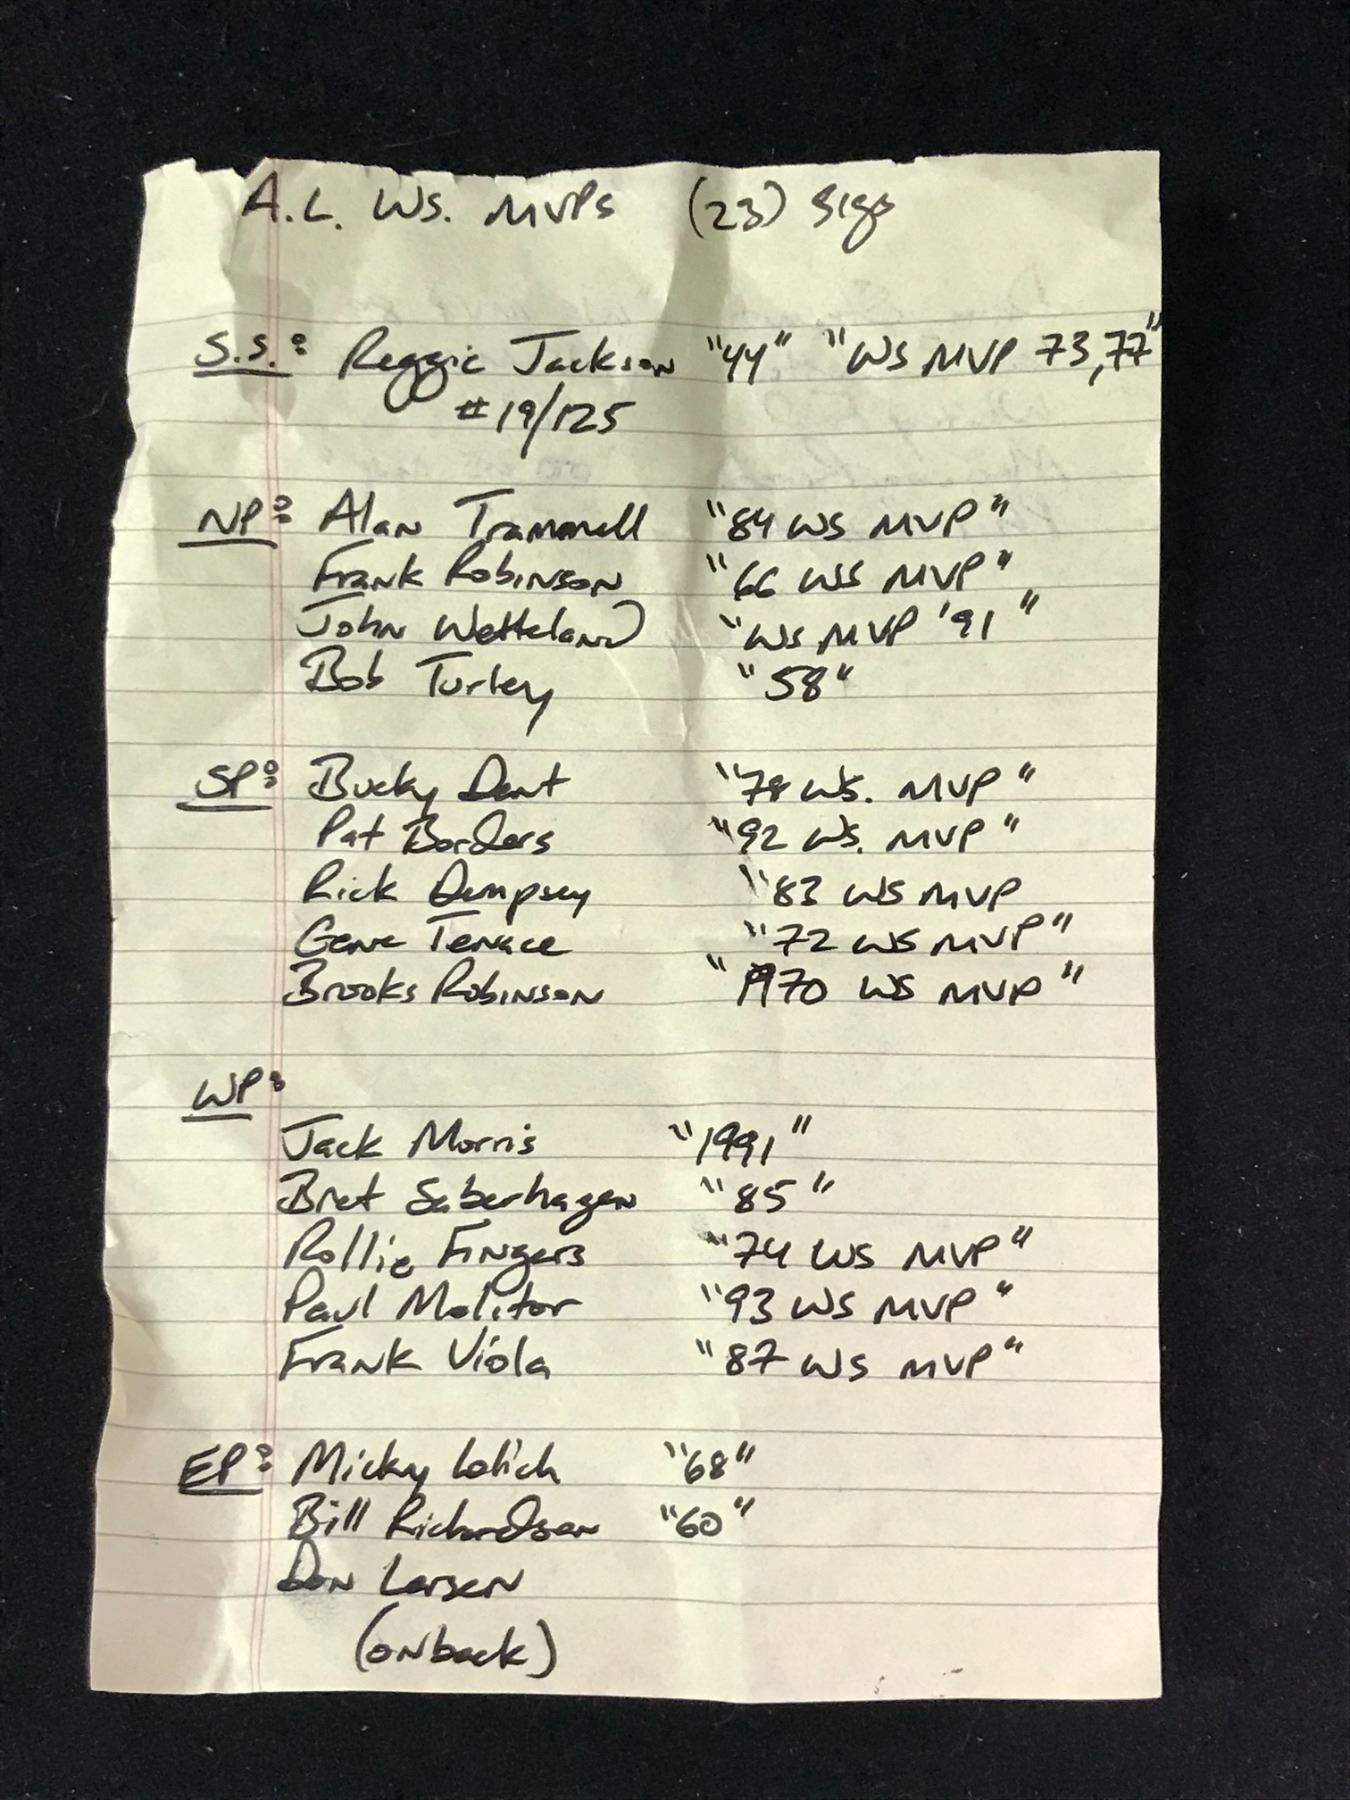 A.L. WS. MVPs (23) Sigs
S.S.: Reggie Jackson "44" "WS MVP 73,77"
#19/125
NP: Alan Trammell "84 WS MVP"
Frank Robinson "66 WS MVP"
John Wetteland "WS MVP '91"
Bob Turley "58"
SP: Bucky Dent "78 WS. MVP"
Pat Borders "92 WS. MVP"
Rick Dempsey "83 WS MVP
Gene Tenace "72 WS MVP"
Brooks Robinson "1970 WS MVP"
WP:
Jack Morris "1991"
Bret Saberhagen "85"
Rollie Fingers "74 WS MVP"
Paul Molitor "93 WS MVP"
Frank Viola "87 WS MVP"
EP: Micky Lolich "68"
Bill Richardson "60"
Don Larsen
(on back)